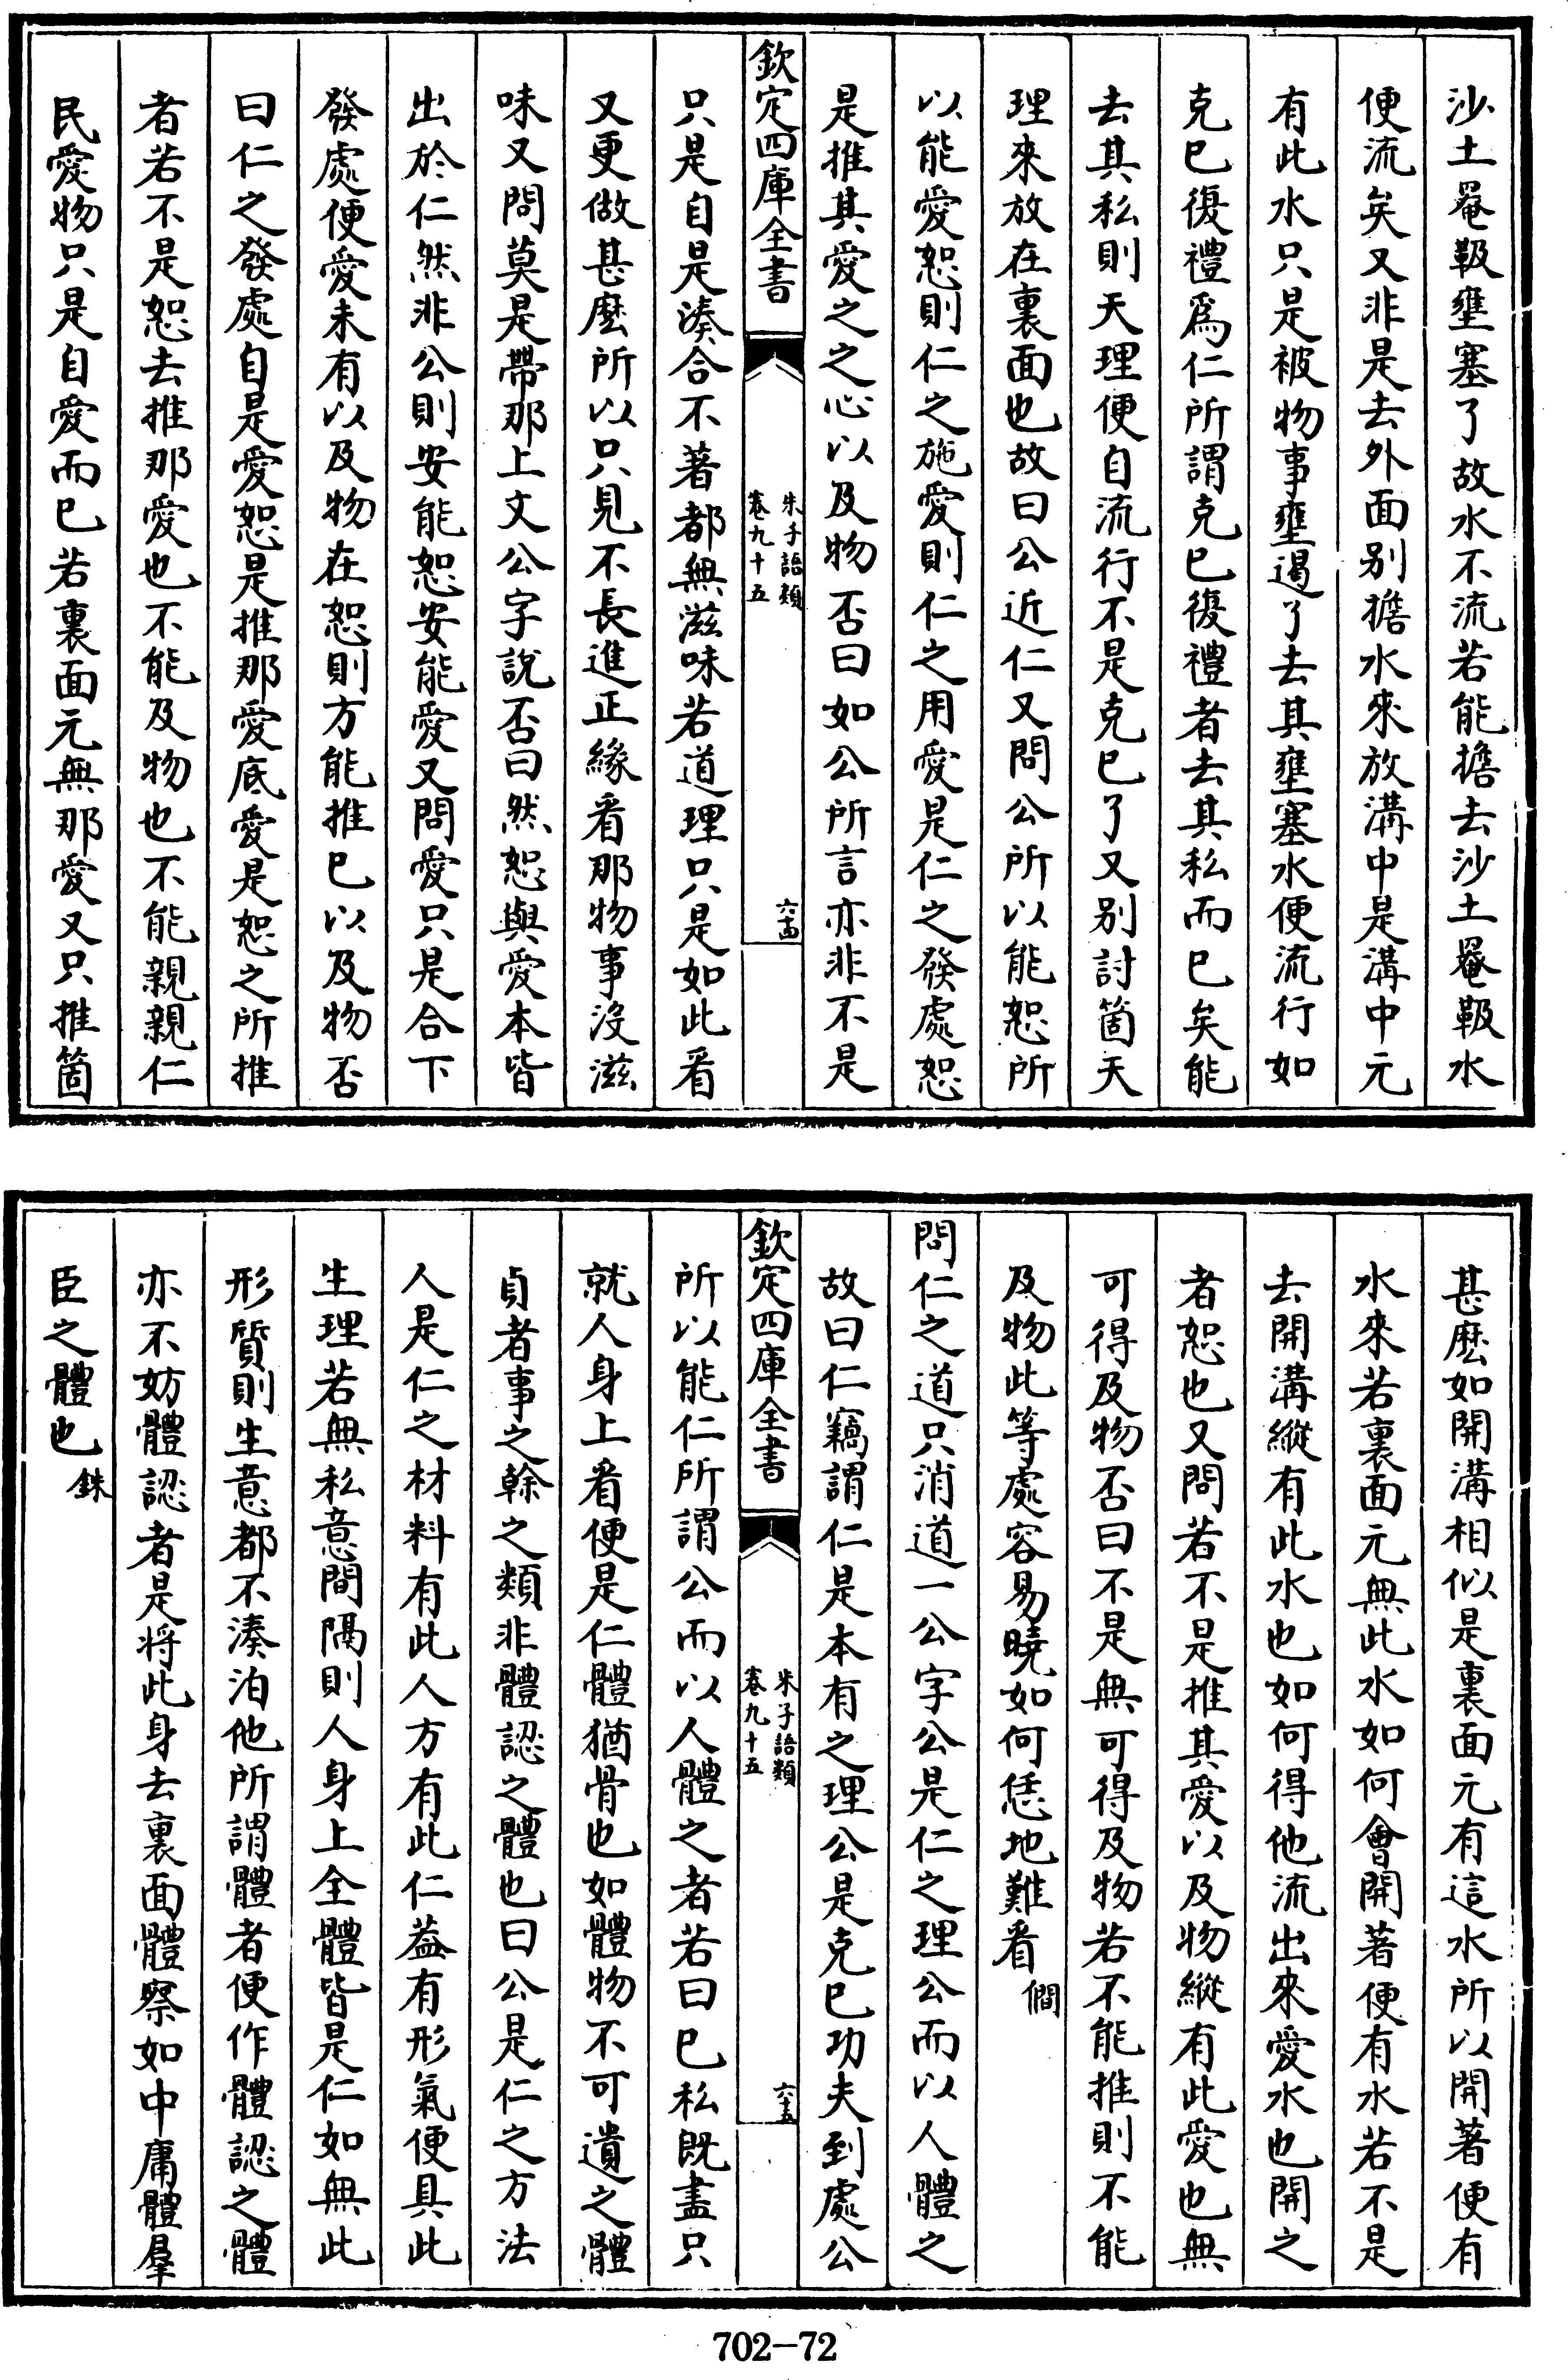 沙土罨靸壅塞了故水不流若能擔去沙土罨靸水
便流矣又非是去外面别擔水來放溝中是溝中元
有此水只是被物事壅遏了去其壅塞水便流行如
克已復禮爲仁所謂克已復禮者去其私而已矣能
去其私則天理便自流行不是克已了又别討箇天
理來放在裏面也故曰公近仁又問公所以能恕所
以能愛恕則仁之施愛則仁之用愛是仁之發處恕
是推其愛之之心以及物否曰如公所言亦非不是
欽定四庫全書
朱子語類
卷九十五
六十四
只是自是湊合不著都無滋味若道理只是如此看
又更做甚麽所以只見不長進正緣看那物事没滋
味又問莫是帶那上文公字說否曰然恕與愛本皆
出於仁然非公則安能恕安能愛又問愛只是合下
發處便愛未有以及物在恕則方能推已以及物否
曰仁之發處自是愛恕是推那愛底愛是恕之所推
者若不是恕去推那愛也不能及物也不能親親仁
民愛物只是自愛而已若裏面元無那愛又只推箇
甚麽如開溝相似是裏面元有這水所以開著便有
水來若裏面元無此水如何會開著便有水若不是
去開溝縱有此水也如何得他流出來愛水也開之
者恕也又問若不是推其愛以及物縱有此愛也無
可得及物否曰不是無可得及物若不能推則不能
及物此等處容易曉如何恁地難看僩
問仁之道只消道一公字公是仁之理公而以人體之
故曰仁竊謂仁是本有之理公是克已功夫到處公
欽定四庫全書
朱子語類
卷九十五
六十五
所以能仁所謂公而以人體之者若曰已私既盡只
就人身上看便是仁體猶骨也如體物不可遺之體
貞者事之幹之類非體認之體也曰公是仁之方法
人是仁之材料有此人方有此仁葢有形氣便具此
生理若無私意間隔則人身上全體皆是仁如無此
形質則生意都不湊泊他所謂體者便作體認之體
亦不妨體認者是將此身去裏面體察如中庸體羣
臣之體也銖
702-72